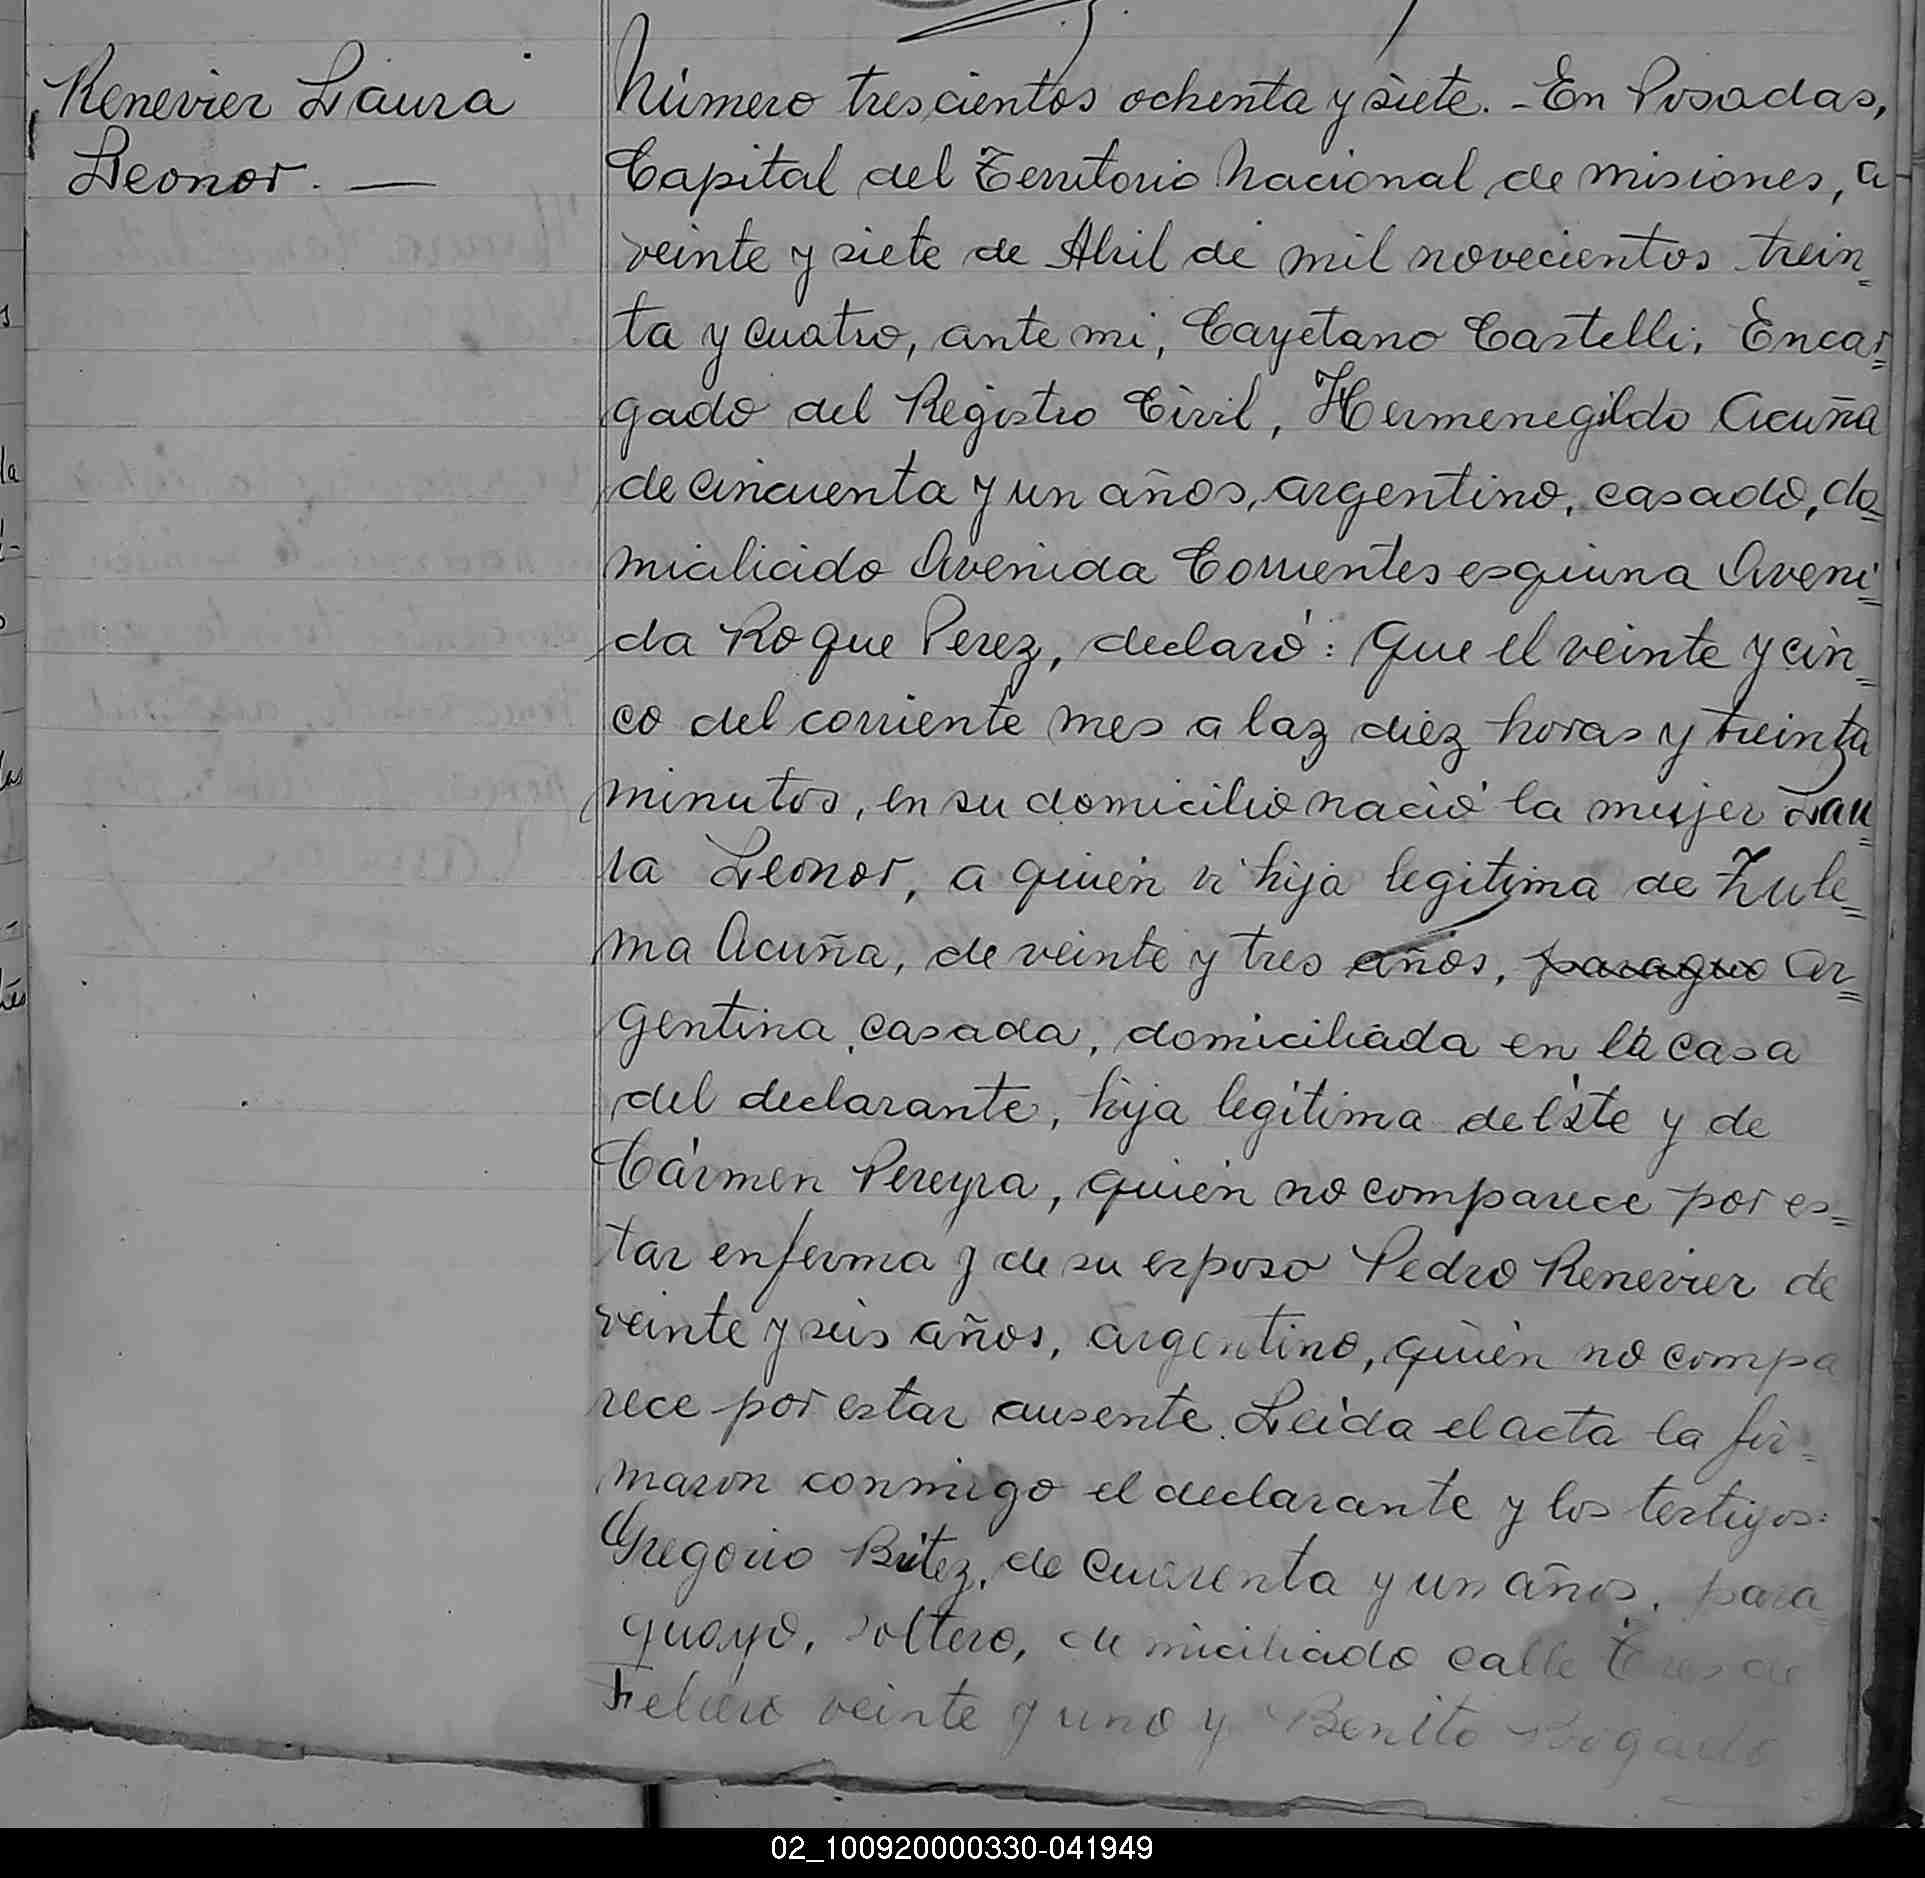 Renevier Laura
Leonor. —
Número trescientos ochenta y siete. - En Posadas,
Capital del Territorio Nacional de misiones, a
veinte y siete de Abril de mil novecientos trein=
ta y cuatro, ante mi, Cayetano Castelli, Encar=
gado del Registro Civil, Hermenegildo Acuña
de cincuenta y un años, argentino, casado, do=
miciliado Avenida Corrientes esquina Aveni=
da Roque Perez, declaró: Que el veinte y cin=
co del corriente mes a laz diez horas y treinta
minutos, en su domicilio nació la mujer Lau=
ra Leonor, a quien vi hija legitima de Zule=
ma Acuña, de veinte y tres años, paraguo ar=
gentina, casada, domiciliada en la casa
del declarante, hija legitima de éste y de
Cármen Pereyra, quien no comparece por es=
tar enferma y de su esposo Pedro Renevier de
veinte y seis años, argentino, quién no compa
rece por estar ausente. Leida el acta la fir=
maron conmigo el declarante y los testigos:
Gregorio Britez, de cuarenta y un años, para
guayo, soltero, domiciliado calle Tres de
Febrero veinte y uno y Benito Bogado
02_100920000330-041949